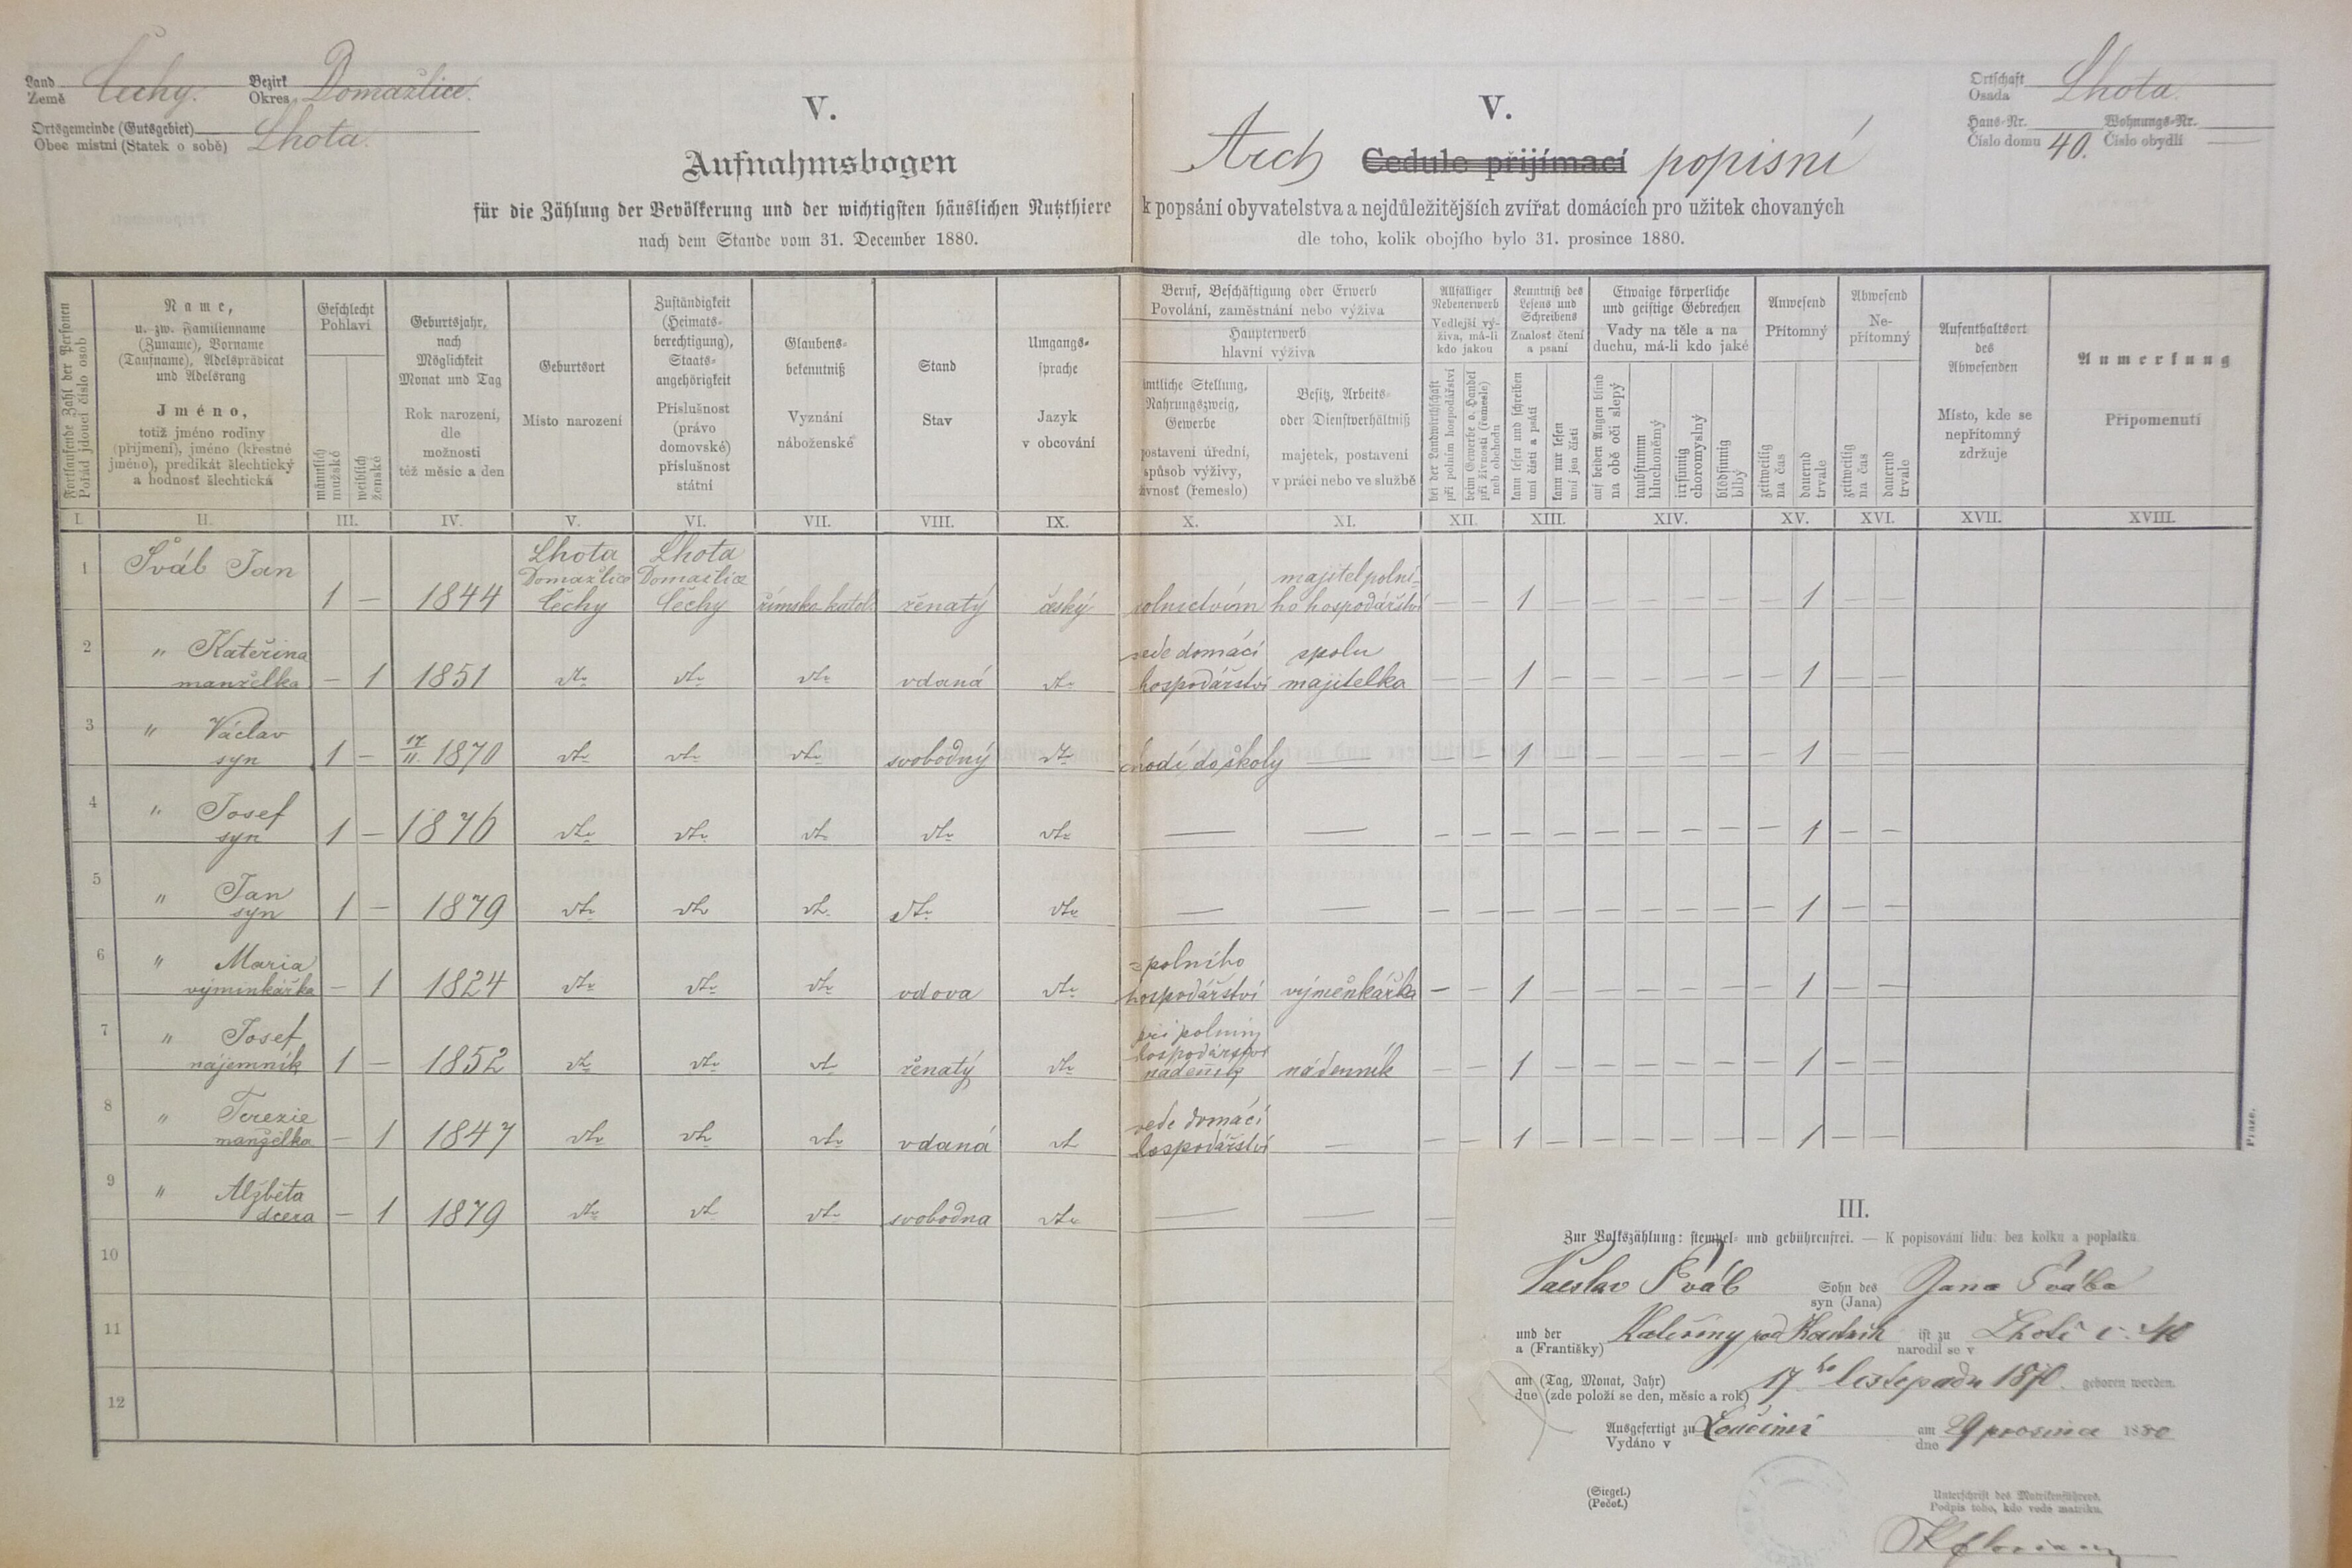 Land
Země Čechy. Bezirk
Okres Domažlice.
Ortsgemeinde (Gutsgebiet)
Obec místní (Statek o sobě) Lhota.
V.
Aufnahmsbogen
für die Zählung der Bevölkerung und der wichtigsten häuslichen Nutzthiere
nach dem Stande vom 31. December 1880.
V.
Arch Cedule přijímací popisní
k popsání obyvatelstva a nejdůležitějších zvířat domácích pro užitek chovaných
dle toho, kolik obojího bylo 31. prosince 1880.
Ortschaft
Osada Lhota
Haus-Nr. Wohnungs-Nr.
Číslo domu 40. Číslo obydlí —
Fortlaufende Zahl der Personen
Pořád jdoucí číslo osob
Name,
u. zw. Familienname
(Zuname), Vorname
(Taufname), Adelsprädicat
und Adelsrang
Jméno,
totiž jméno rodiny
(příjmení), jméno (křestné
jméno), predikát šlechtický
a hodnosť šlechtická
Geschlecht
Pohlaví
männlich
mužské
weiblich
ženské
Geburtsjahr,
nach
Möglichkeit
Monat und Tag
Rok narození,
dle
možnosti
též měsíc a den
Geburtsort
Místo narození
Zuständigkeit
(Heimats-
berechtigung),
Staats-
angehörigkeit
Příslušnost
(právo
domovské)
příslušnost
státní
Glaubens-
bekenntniß
Vyznání
náboženské
Stand
Stav
Umgangs-
sprache
Jazyk
v obcování
Beruf, Beschäftigung oder Erwerb
Povolání, zaměstnání nebo výživa
Haupterwerb
hlavní výživa
amtliche Stellung,
Nahrungszweig,
Gewerbe
postavení úřední,
spůsob výživy,
živnost (řemeslo)
Besitz, Arbeits-
oder Dienstverhältniß
majetek, postavení
v práci nebo ve službě
Allfälliger
Nebenerwerb
Vedlejší vý-
živa, má-li
kdo jakou
bei der Landwirthschaft
při polním hospodářství
beim Gewerbe o. Handel
při živnosti (řemesle)
neb obchodu
Kenntniß des
Lesens und
Schreibens
Znalosť čtení
a psaní
kann lesen und schreiben
umí čísti a psáti
kann nur lesen
umí jen čísti
Etwaige körperliche
und geistige Gebrechen
Vady na těle a na
duchu, má-li kdo jaké
auf beiden Augen blind
na obě oči slepý
taubstumm
hluchoněmý
irrsinnig
choromyslný
blödsinnig
blbý
Anwesend
Přítomný
zeitweilig
na čas
dauernd
trvale
Abwesend
Ne-
přítomný
zeitweilig
na čas
dauernd
trvale
Aufenthaltsort
des
Abwesenden
Místo, kde se
nepřítomný
zdržuje
Anmerkung
Připomenutí
I. II. III. IV. V. VI. VII. VIII. IX. X. XI. XII. XIII. XIV. XV. XVI. XVII. XVIII.
Lhota Lhota
1 Šváb Jan Domažlice Domažlice majitel polní-
1 — 1844 Čechy Čechy římsko-katol. ženatý český rolnictvím ho hospodářství — — 1 — — — — — — 1 — —
2 " Kateřina vede domácí spolu
manželka — 1 1851 dto dto dto vdaná dto hospodářství majitelka — — 1 — — — — — — 1 — —
3 " Václav
syn 1 — 17/11. 1870 dto dto dto svobodný dto chodí do školy — — — 1 — — — — — — 1 — —
4 " Josef
syn 1 — 1876 dto dto dto dto dto — — — — — — — — — — — 1 — —
5 " Jan
syn 1 — 1879 dto dto dto dto dto — — — — — — — — — — — 1 — —
6 " Maria z polního
výminkářka — 1 1824 dto dto dto vdova dto hospodářství výměnkářka — — 1 — — — — — — 1 — —
7 " Josef při polním
hospodářství
nájemník 1 — 1852 dto dto dto ženatý dto nádeník — — 1 — — — — — — 1 — —
8 " Terezie vede domácí
manželka — 1 1847 dto dto dto vdaná dto hospodářství — — — 1 — — — — — — 1 — —
9 " Alžběta
dcera — 1 1879 dto dto dto svobodna dto — — —
10
11
12
III.
Zur Volkszählung: stempel- und gebührenfrei. — K popisování lidu: bez kolku a poplatku.
Václav Šváb Sohn des
syn (Jana) Jana Švába
und der
a (Františky) Kateřiny ist zu
narodil se v Lhotě č. 40
am (Tag, Monat, Jahr)
dne (zde položí se den, měsíc a rok) 17ho listopadu 1870. geboren worden.
Ausgefertigt zu
Vydáno v Loučimi am
dne 29 prosince 1880
(Siegel.)
(Pečeť.)
Unterschrift des Matrikenführers.
Podpis toho, kdo vede matriku.